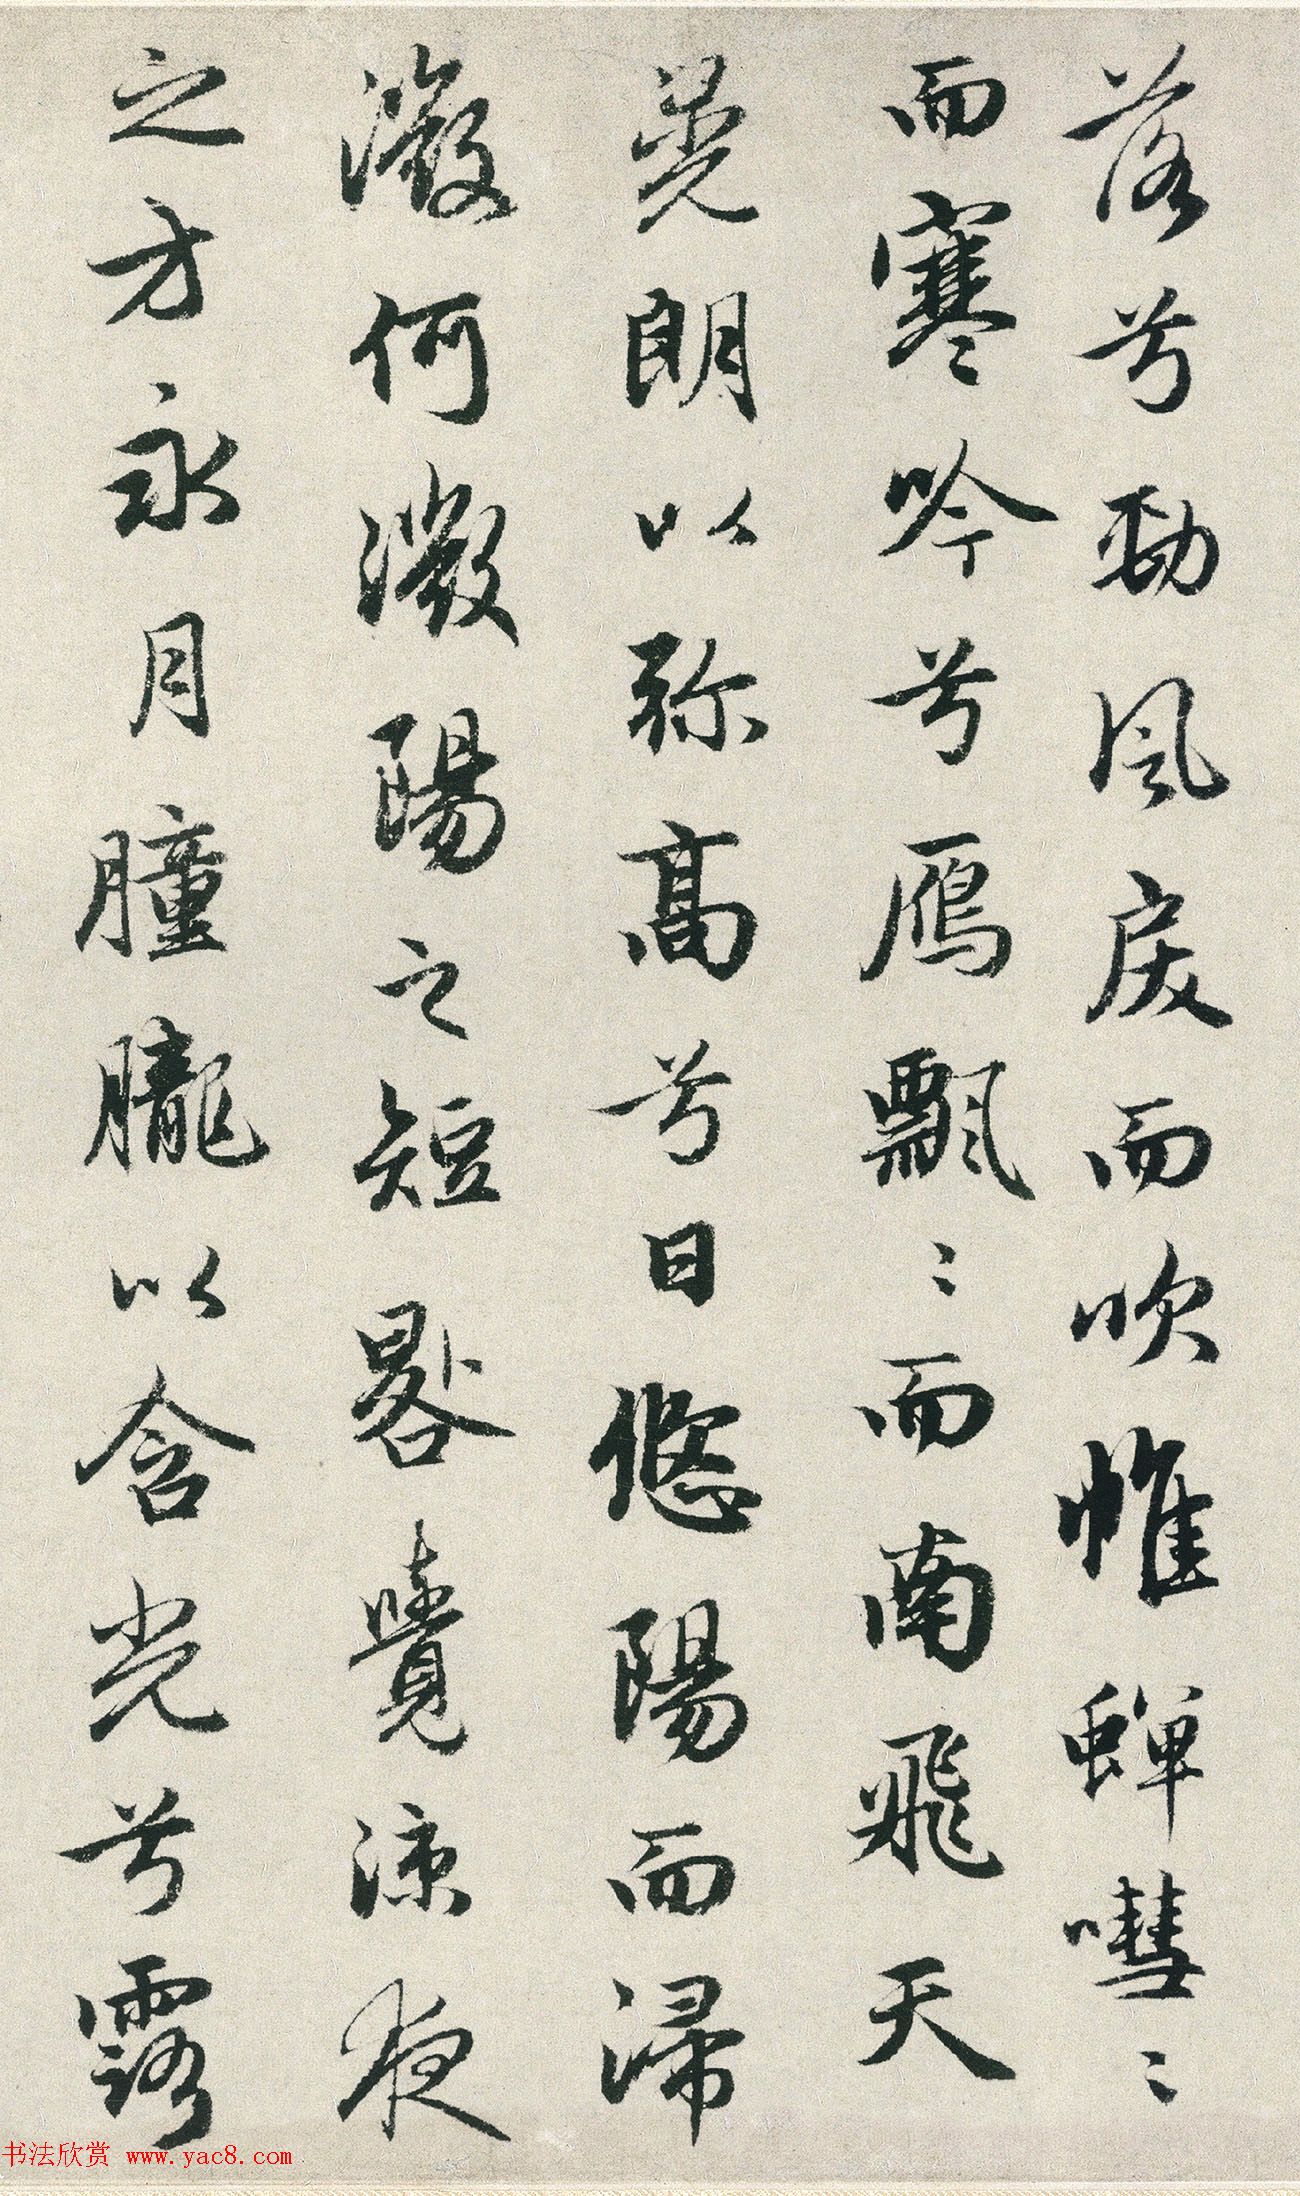 落兮勁風戾而吹帷蟬嘒〻
而寒吟兮鴈飄〻而南飛天
晃朗以弥高兮日悠陽而
澂何澂陽之短晷覺涼夜
之方永月朣朧以含光兮露
书法欣赏 www.yac8.com